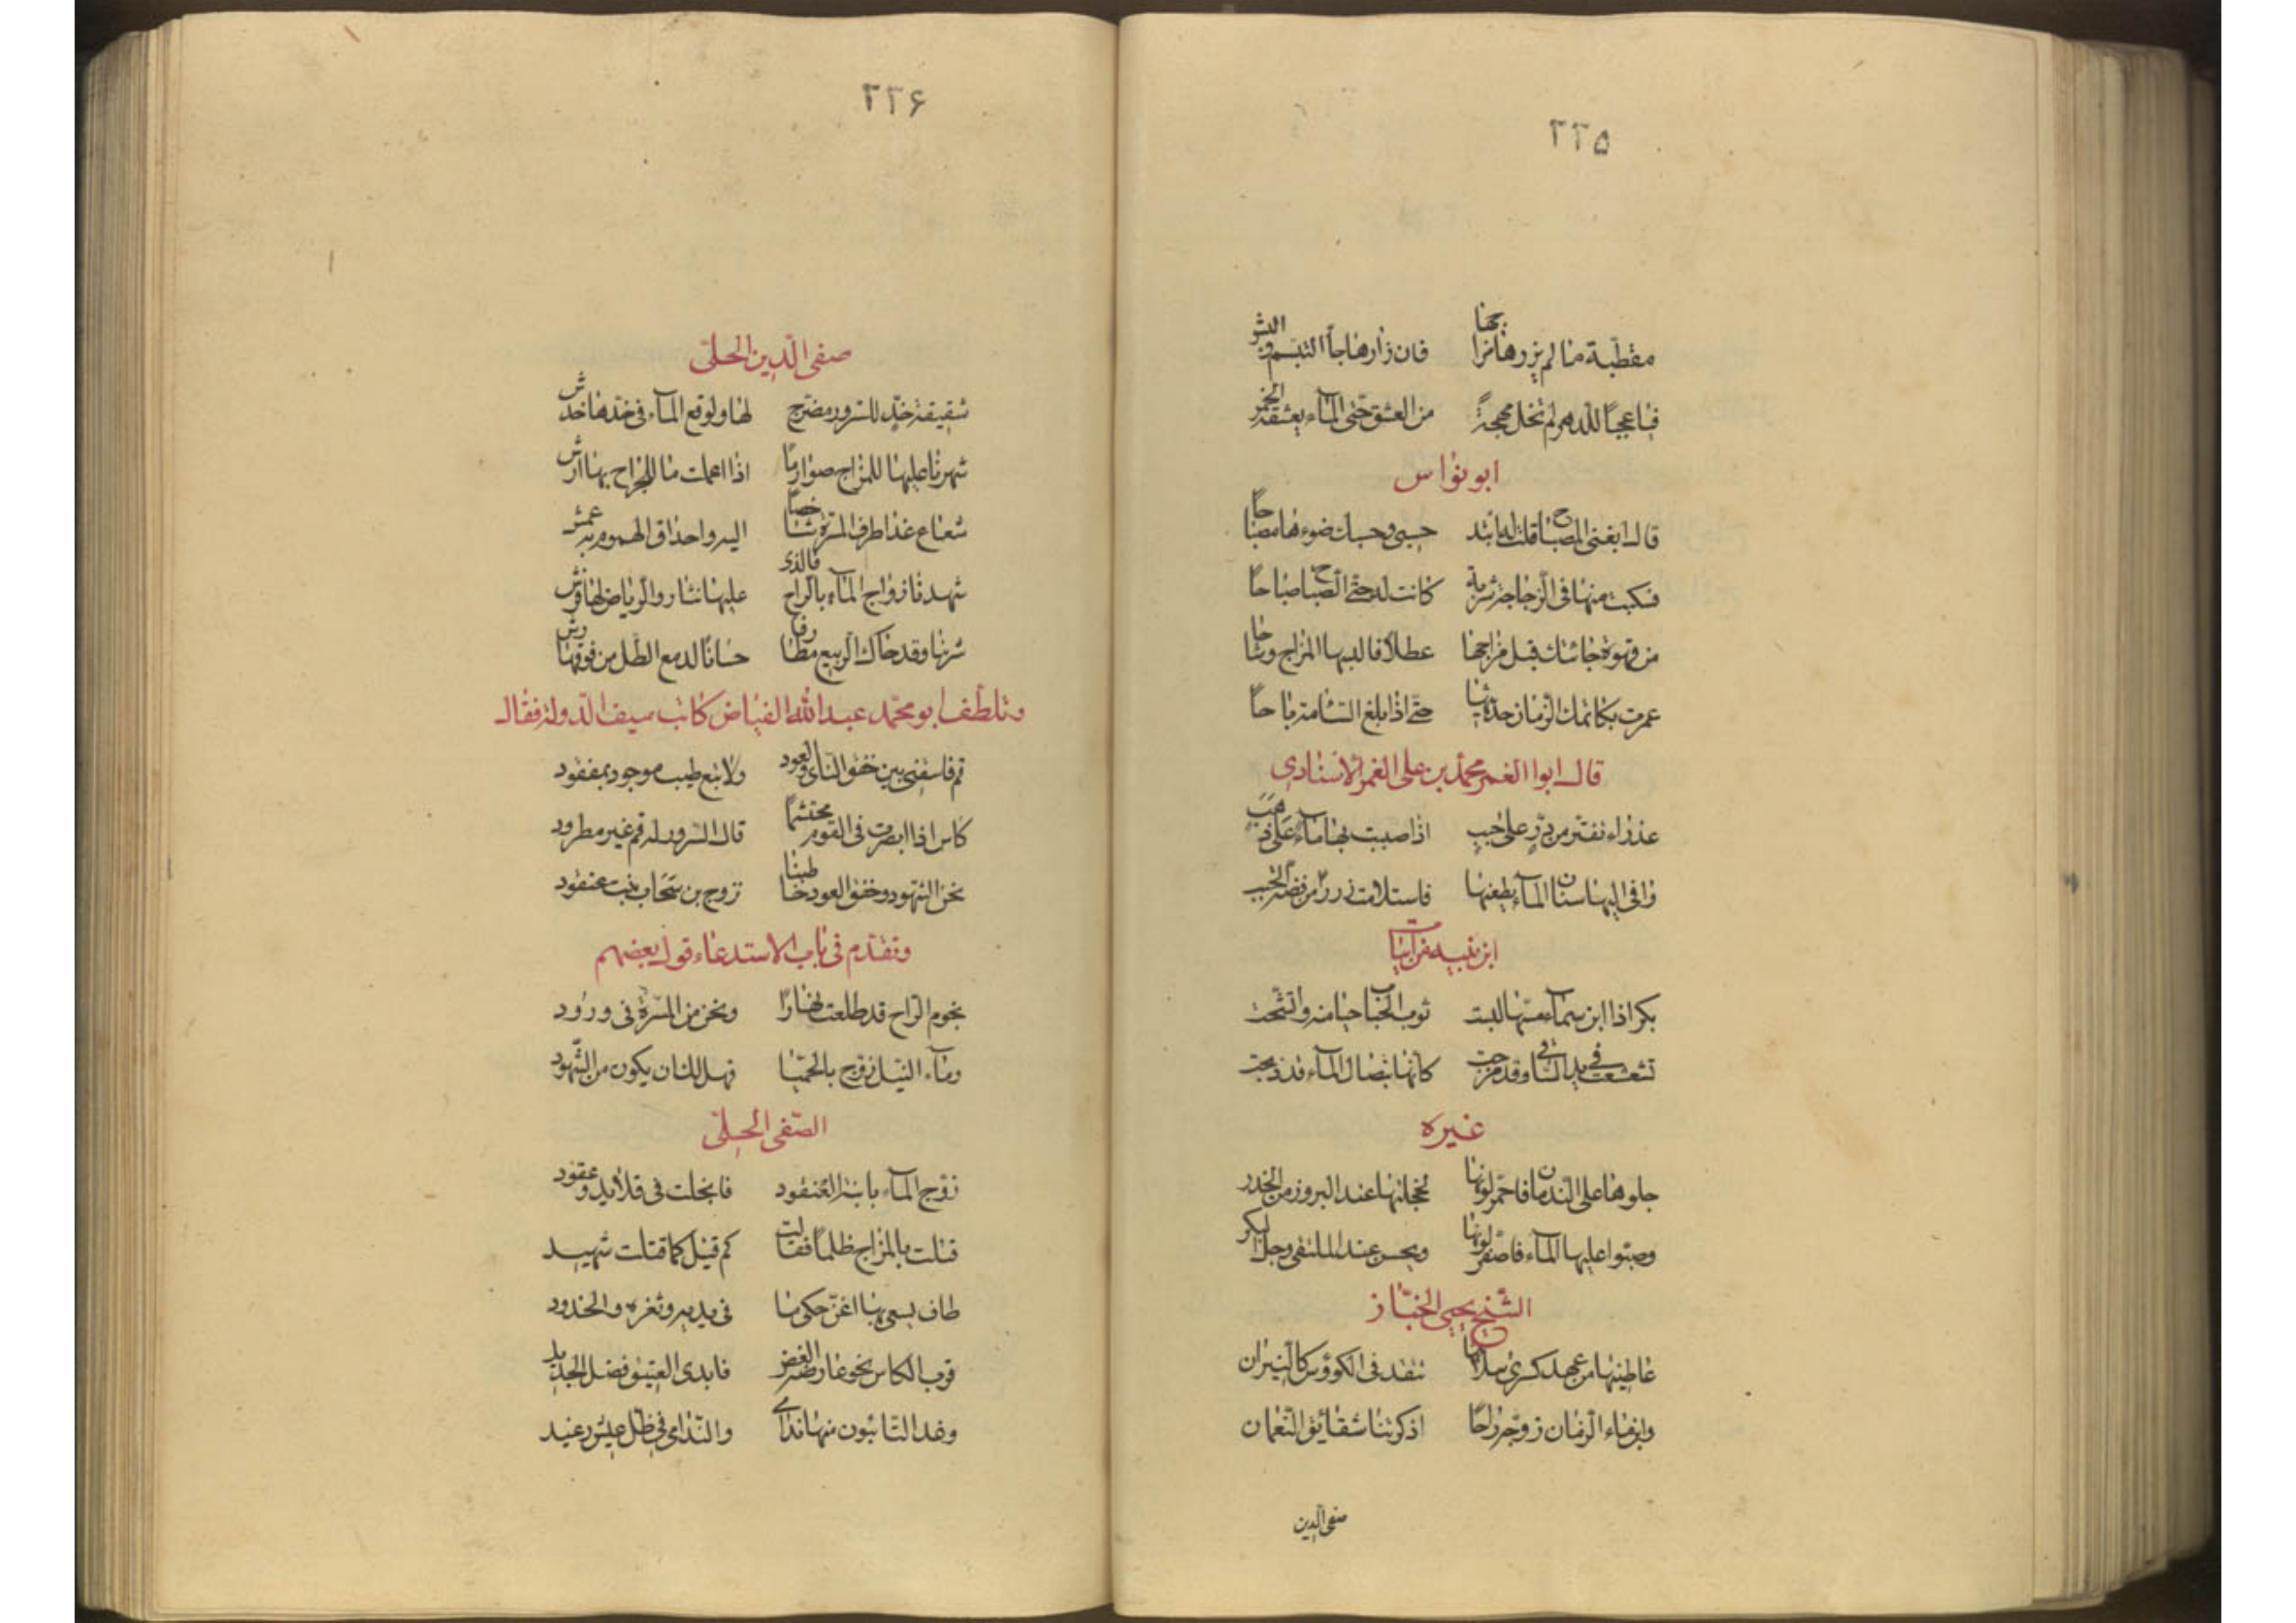 ٢٢٥
مقطبة ما لم يزرها مزاجها فان زارها جاء التبسم والبشر
فيا عجبا للدهر لم تخل مهجة من العشق حتى الماء يعشقه الخمر
ابو نواس
قال ابغنى المصباح قلت له اتئد حسبى وحسبك ضوءها مصباحا
فسكبت منها فى الزجاجة شربة كانت له حتى الصباح صباحا
من قهوة جاءتك قبل مزاجها عطلا فالبسها المزاج وشاحا
عمرت يكاتمك الزمان حديثها حتى اذا بلغ السئامة باحا
قال ابوا الغمر محمد بن على الغمر الاسنادى
عذراء تفتر من در على حبب اذا صببت بها ماء على ذهب
وافى اليها سنان الماء يطعنها فاستلامت زردا من فضة الحبب
ابن نبيه من ابيات
بكر اذا ابن سماء مسها لبست ثوب الحباب حيا منه واتشحت
تشعشعت فى يد الساقى وقد مزجت كانها بنصال الماء قد ذبحت
غيره
جلوها على الندمان فاحمر لونها لخجلتها عند البروز من الخدر
وصبوا عليها الماء فاصفر لونها ويحسن عند الملتقى وجل البكر
الشيخ يحيى الخباز
عاطنيها من عهد كسرى سلافا تتقد فى الكوؤس كالنيران
وابن ماء الزمان زوجه راحا اذكرتنا شقائق النعمان
صفى الدين
٢٢۶
صفى الدين الحلى
شقيقة خد للسرور مضرج لها ولوقع الماء فى خدها خدش
شهرنا عليها للمزاج صوارما اذا اعملت ما للجراح بها ارش
شعاع غذا طرف المسرة شاخصا اليه واحداق الهموم به عمش
شهدنا زواج الماء بالراح فالذى عليها نثار والرياض لها فرش
شربنا وقد حاك الربيع مطارفا حسانا لدمع الطل من فوقها رش
وتلطف ابو محمد عبد الله الفياض كاتب سيف الدولة فقال
قم فاسقنى بين خفق الناى والعود ولا تبع طيب موجود بمفقود
كاس اذا ابصرت فى القوم محتشما قال السرور له قم غير مطرود
نحن الشهود وخفق العود خاطبنا نزوج بن سحاب بنت عنقود
وتقدم فى باب الاستدعاء قول بعضهم
نجوم الراح قد طلعت نهارا ونحن من المسرة فى ورود
وماء النيل زوج بالحميا فهل لك ان يكون من الشهود
الصفى الحلى
زوج الماء بابنة العنقود فانجلت فى قلايد وعقود
قتلت بالمزاج ظلما فقالت كم قتيل كما قتلت شهيد
طاف يسعى بها اغن حكى ما فى يديه وثغره والخدود
قرب الكاس نحو عارضه الغض فابدى العتيق فضل الجديد
وغدا التائبون منها نداى والندامى فى ظل عيش رغيد